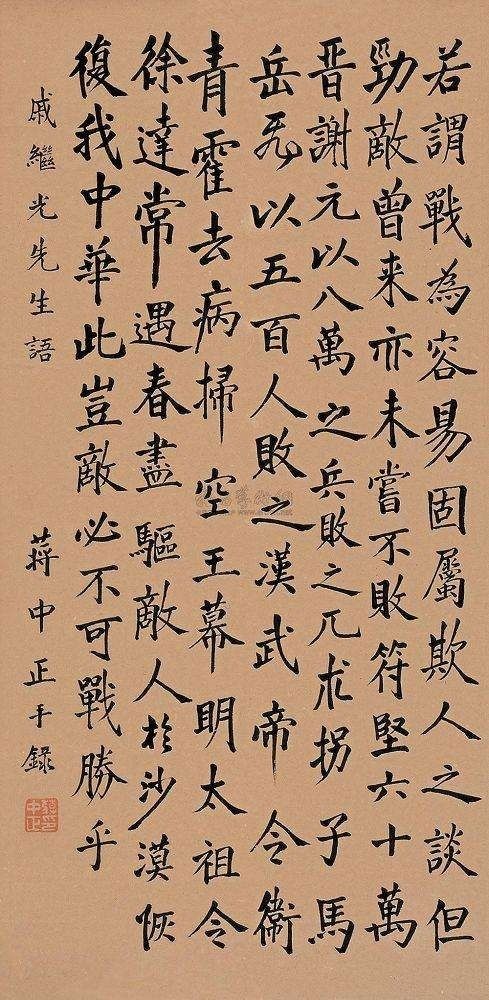 若謂戰為容易固屬欺人之談但
勁敵曾来亦未嘗不敗符堅六十萬
晋謝元以八萬之兵敗之兀朮拐子馬
岳飛以五百人敗之漢武帝令衞
青霍去病掃空王幕明太祖令
徐達常遇春盡驅敵人於沙漠恢
復我中華此豈敵必不可戰勝乎
戚繼光先生語
蔣中正手錄